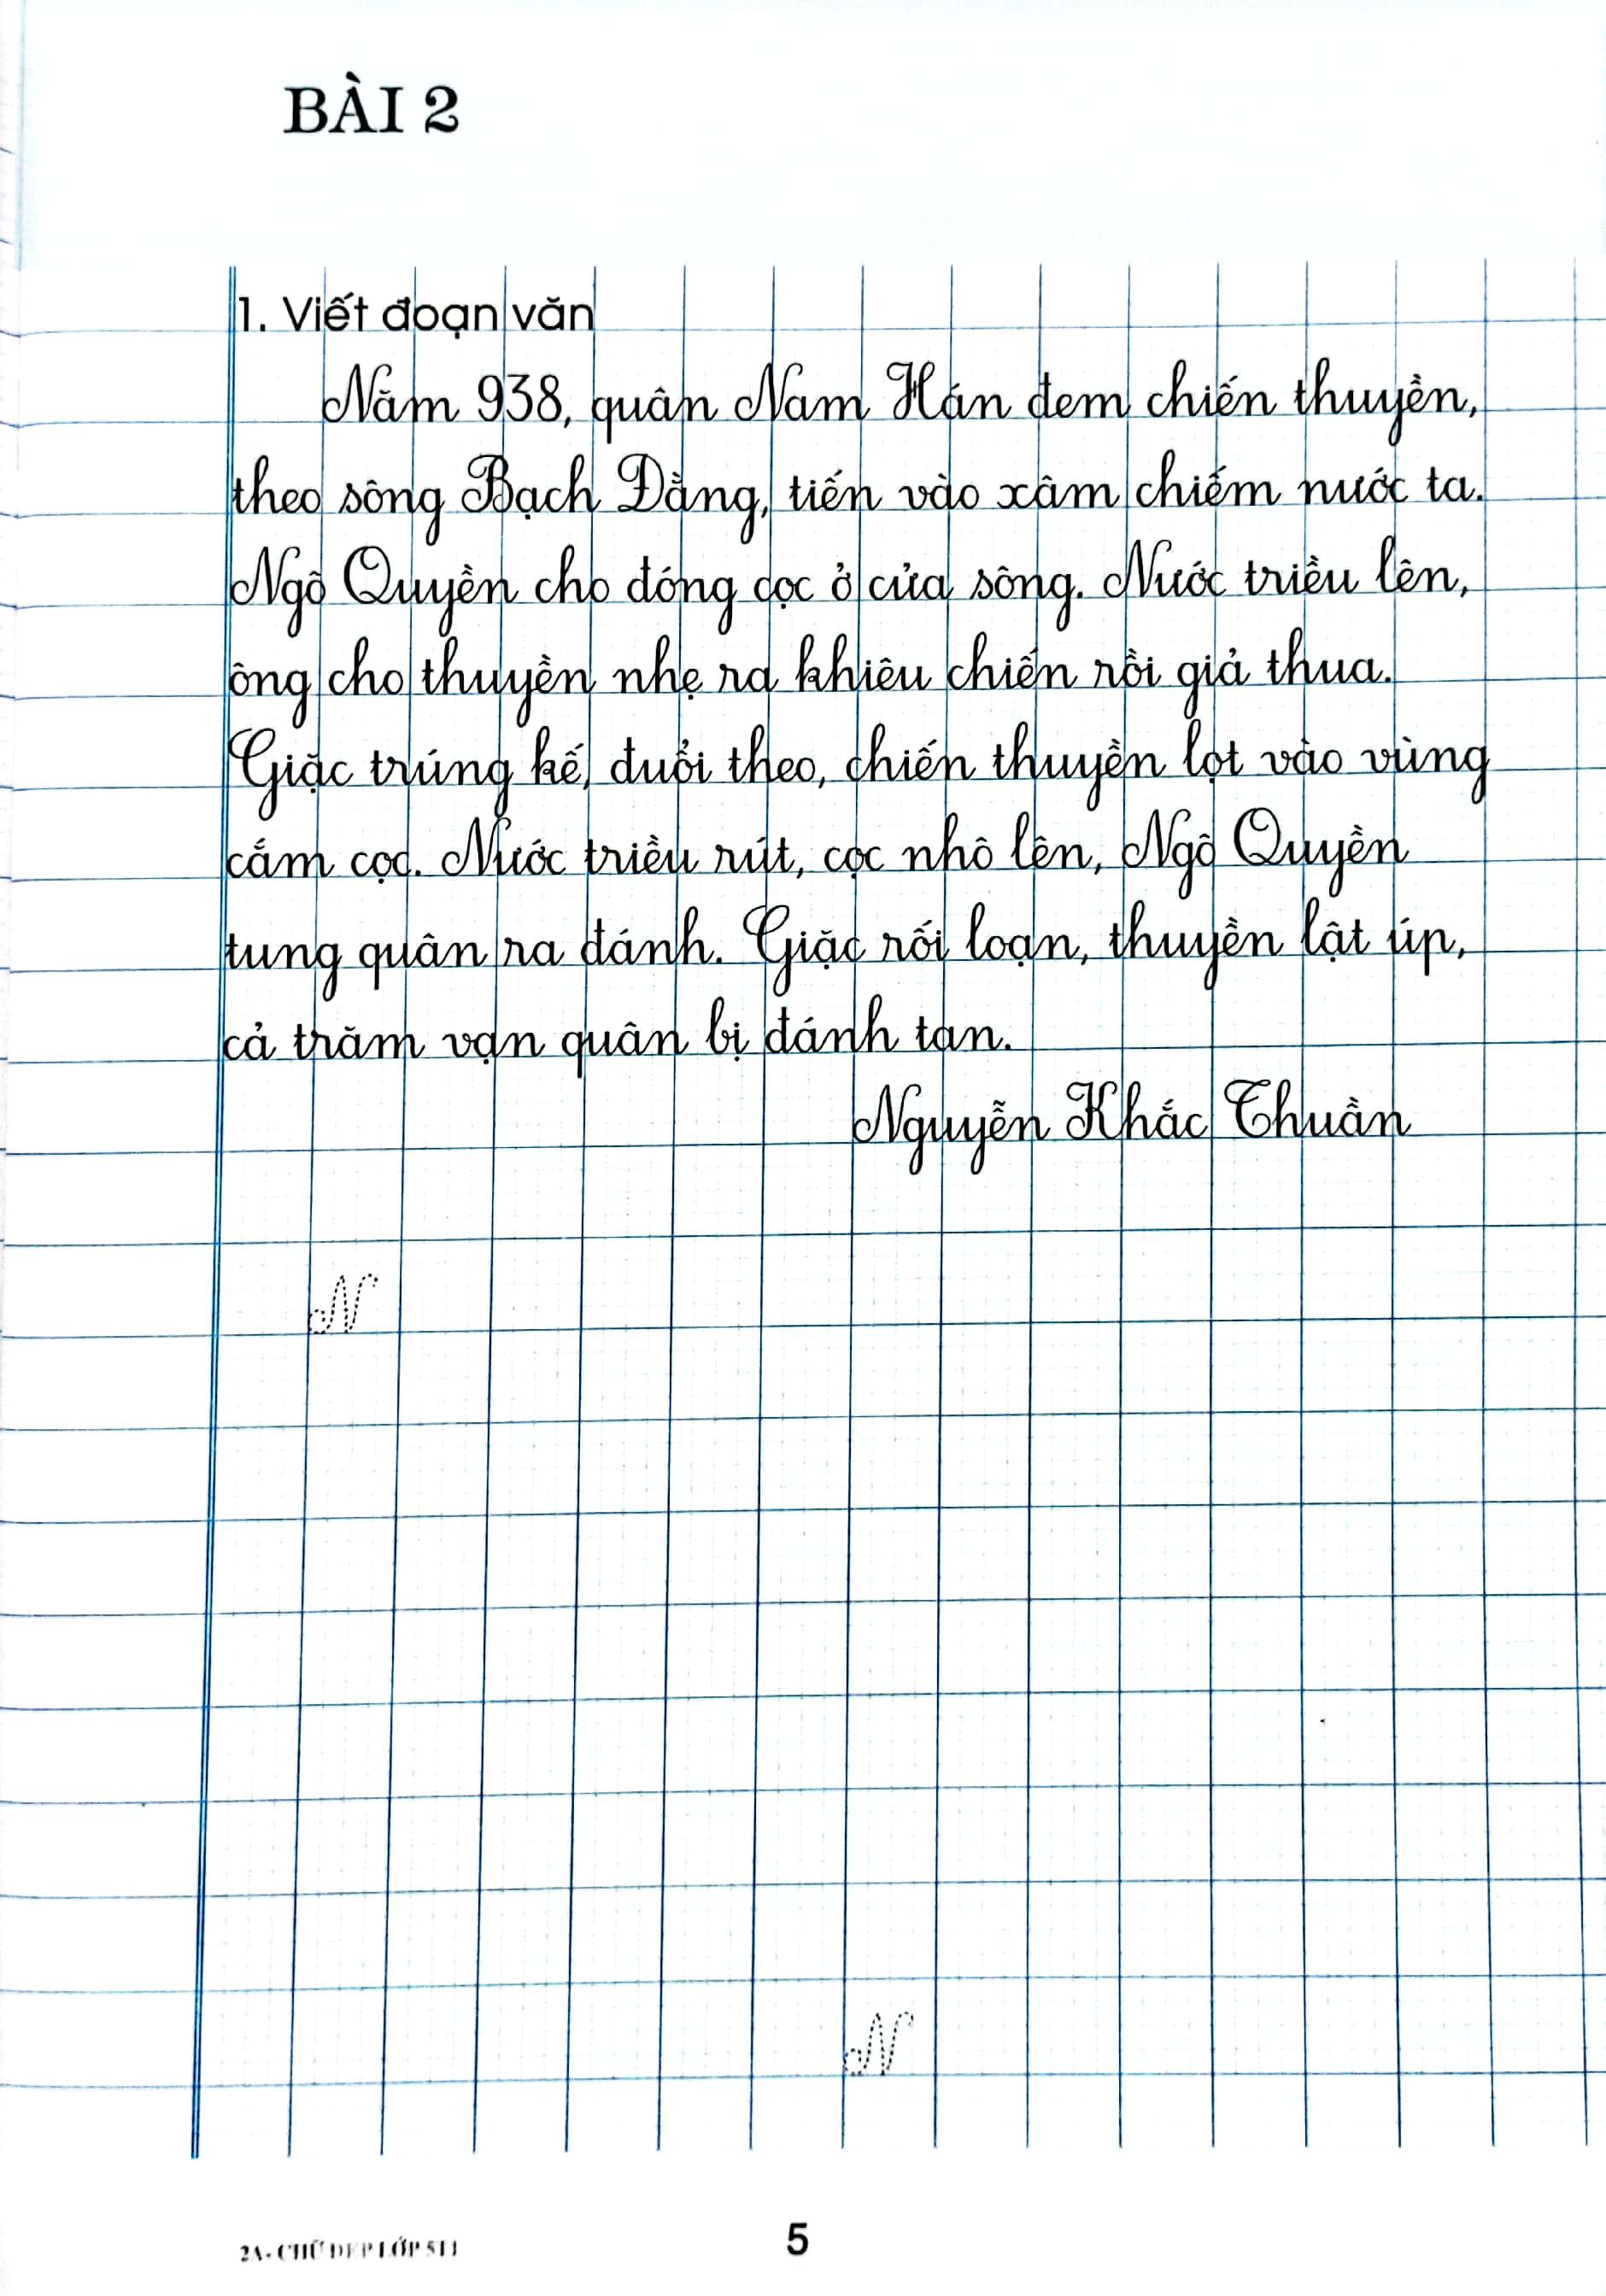 BÀI 2
1. Viết đoạn văn
Năm 938, quân Nam Hán đem chiến thuyền,
theo sông Bạch Đằng, tiến vào xâm chiếm nước ta.
Ngô Quyền cho đóng cọc ở cửa sông. Nước triều lên,
ông cho thuyền nhẹ ra khiêu chiến rồi giả thua.
Giặc trúng kế, đuổi theo, chiến thuyền lọt vào vùng
cắm cọc. Nước triều rút, cọc nhô lên, Ngô Quyền
tung quân ra đánh. Giặc rối loạn, thuyền lật úp,
cả trăm vạn quân bị đánh tan.
Nguyễn Khắc Thuần
N
N
2A- CHỮ ĐẸP LỚP 511
5